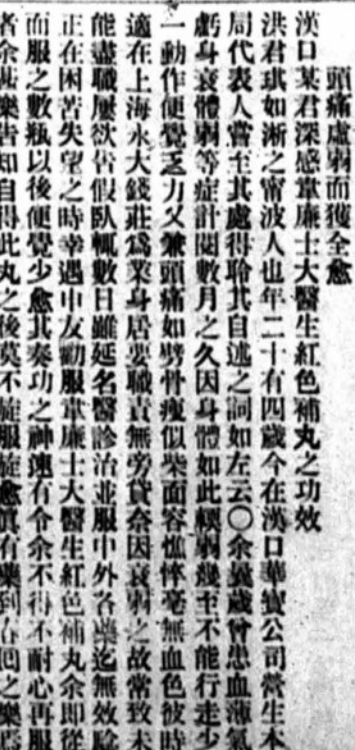 頭痛虛弱而獲全愈
漢口某君深感韋廉士大醫生紅色補丸之功效
洪君琪如浙之甯波人也年二十有四歲今在漢口華寶公司營生本
局代表人嘗至其處得聆其自述之詞如左云〇余曩歲曾患血薄氣
虧身衰體弱等症計閱數月之久因身體如此輭弱幾至不能行走少
一動作便覺乏力又兼頭痛如劈骨瘦似柴面容憔悴毫無血色彼時
適在上海永大錢莊爲業身居要職責無旁貸奈因衰弱之故常致未
能盡職屢欲告假臥輒數日雖延名醫診治並服中外各藥迄無效騐
正在困苦失望之時幸遇申友勸服韋廉士大醫生紅色補丸余即從
而服之數瓶以後便覺少愈其奏功之神速有令余不得不耐心再服
者余甚樂告知自得此丸之後莫不旋服旋愈眞有藥到春回之樂焉